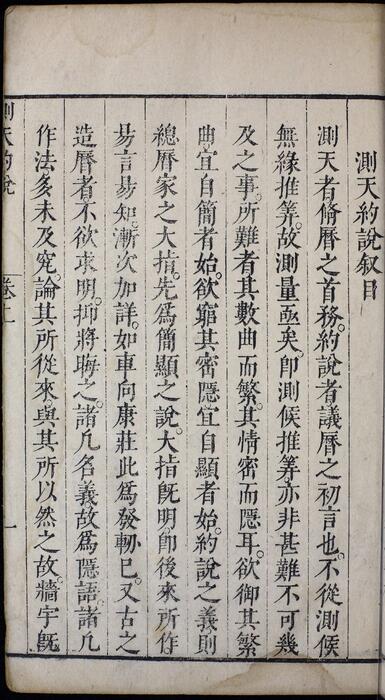 測天約說叙目
測天者脩曆之首務。約說者議曆之初言也。不從測候
無緣推筭。故測量亟矣。卽測候推筭。亦非甚難不可幾
及之事。所難者其數曲而繁。其情密而隱耳。欲御其繁
曲宜自簡者始。欲窮其密隱宜自顯者始。約說之義則
總曆家之大指。先爲簡顯之說。大指旣明。卽後來所作
易言易知。漸次加詳。如車向康莊此爲發軔已。又古之
造曆者。不欲求明。抑將晦之。諸凡名義故爲隱語。諸凡
作法多未及究。論其所從來。與其所以然之故。牆宇旣
測天約說
卷上
一